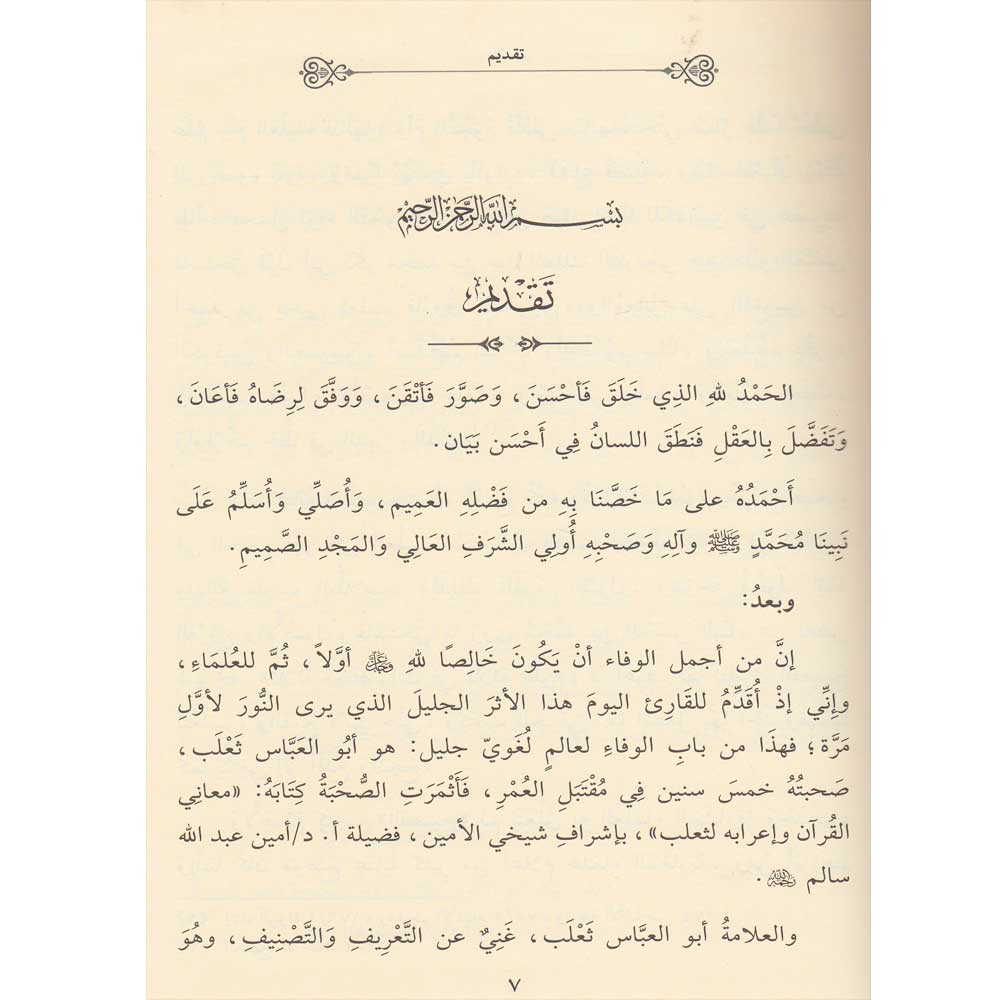 تقديم
بسم الله الرحمن الرحيم
تَقْدِيم
الحَمْدُ للهِ الذِي خَلَقَ فَأَحْسَنَ، وَصَوَّرَ فَأَتْقَنَ، وَوَفَّقَ لِرِضَاهُ فَأَعَانَ،
وَتَفَضَّلَ بِالعَقْلِ فَنَطَقَ اللسانُ فِي أَحْسَن بَيَان.
أَحْمَدُهُ على مَا خَصَّنَا بِهِ من فَضْلِهِ العَمِيم، وَأُصَلِّي وَأُسَلِّمُ عَلَى
نَبِينَا مُحَمَّدٍ ﷺ وآلِهِ وَصَحْبِهِ أُولِي الشَّرَفِ العَالِي وَالمَجْدِ الصَّمِيمِ.
وبعدُ:
إنَّ من أجمل الوفاء أنْ يَكُونَ خَالِصًا للهِ ﷿ أوَّلاً، ثُمَّ للعُلمَاءِ،
وإنِّي إذْ أُقَدِّمُ للقَارِئ اليومَ هذا الأثرَ الجليلَ الذي يرى النُّورَ لأوَّلِ
مَرَّة؛ فهذَا من بابِ الوفاءِ لعالمٍ لُغَويّ جليل: هو أبُو العَبَّاس ثَعْلَب،
صَحبتُهُ خمسَ سنين فِي مُقْتَبَلِ العُمْرِ، فَأَثْمَرَتِ الصُّحْبَةُ كِتَابَهُ: «معانِي
القُرآن وإعرابه لثعلب»، بإشرافِ شيخِي الأمين، فضيلة أ. د/أمين عبد الله
سالم رحمه الله.
والعلامةُ أبو العبَّاس ثَعْلَب، غَنِيٌ عن التَّعْرِيفِ وَالتَّصْنِيفِ، وهُوَ
٧